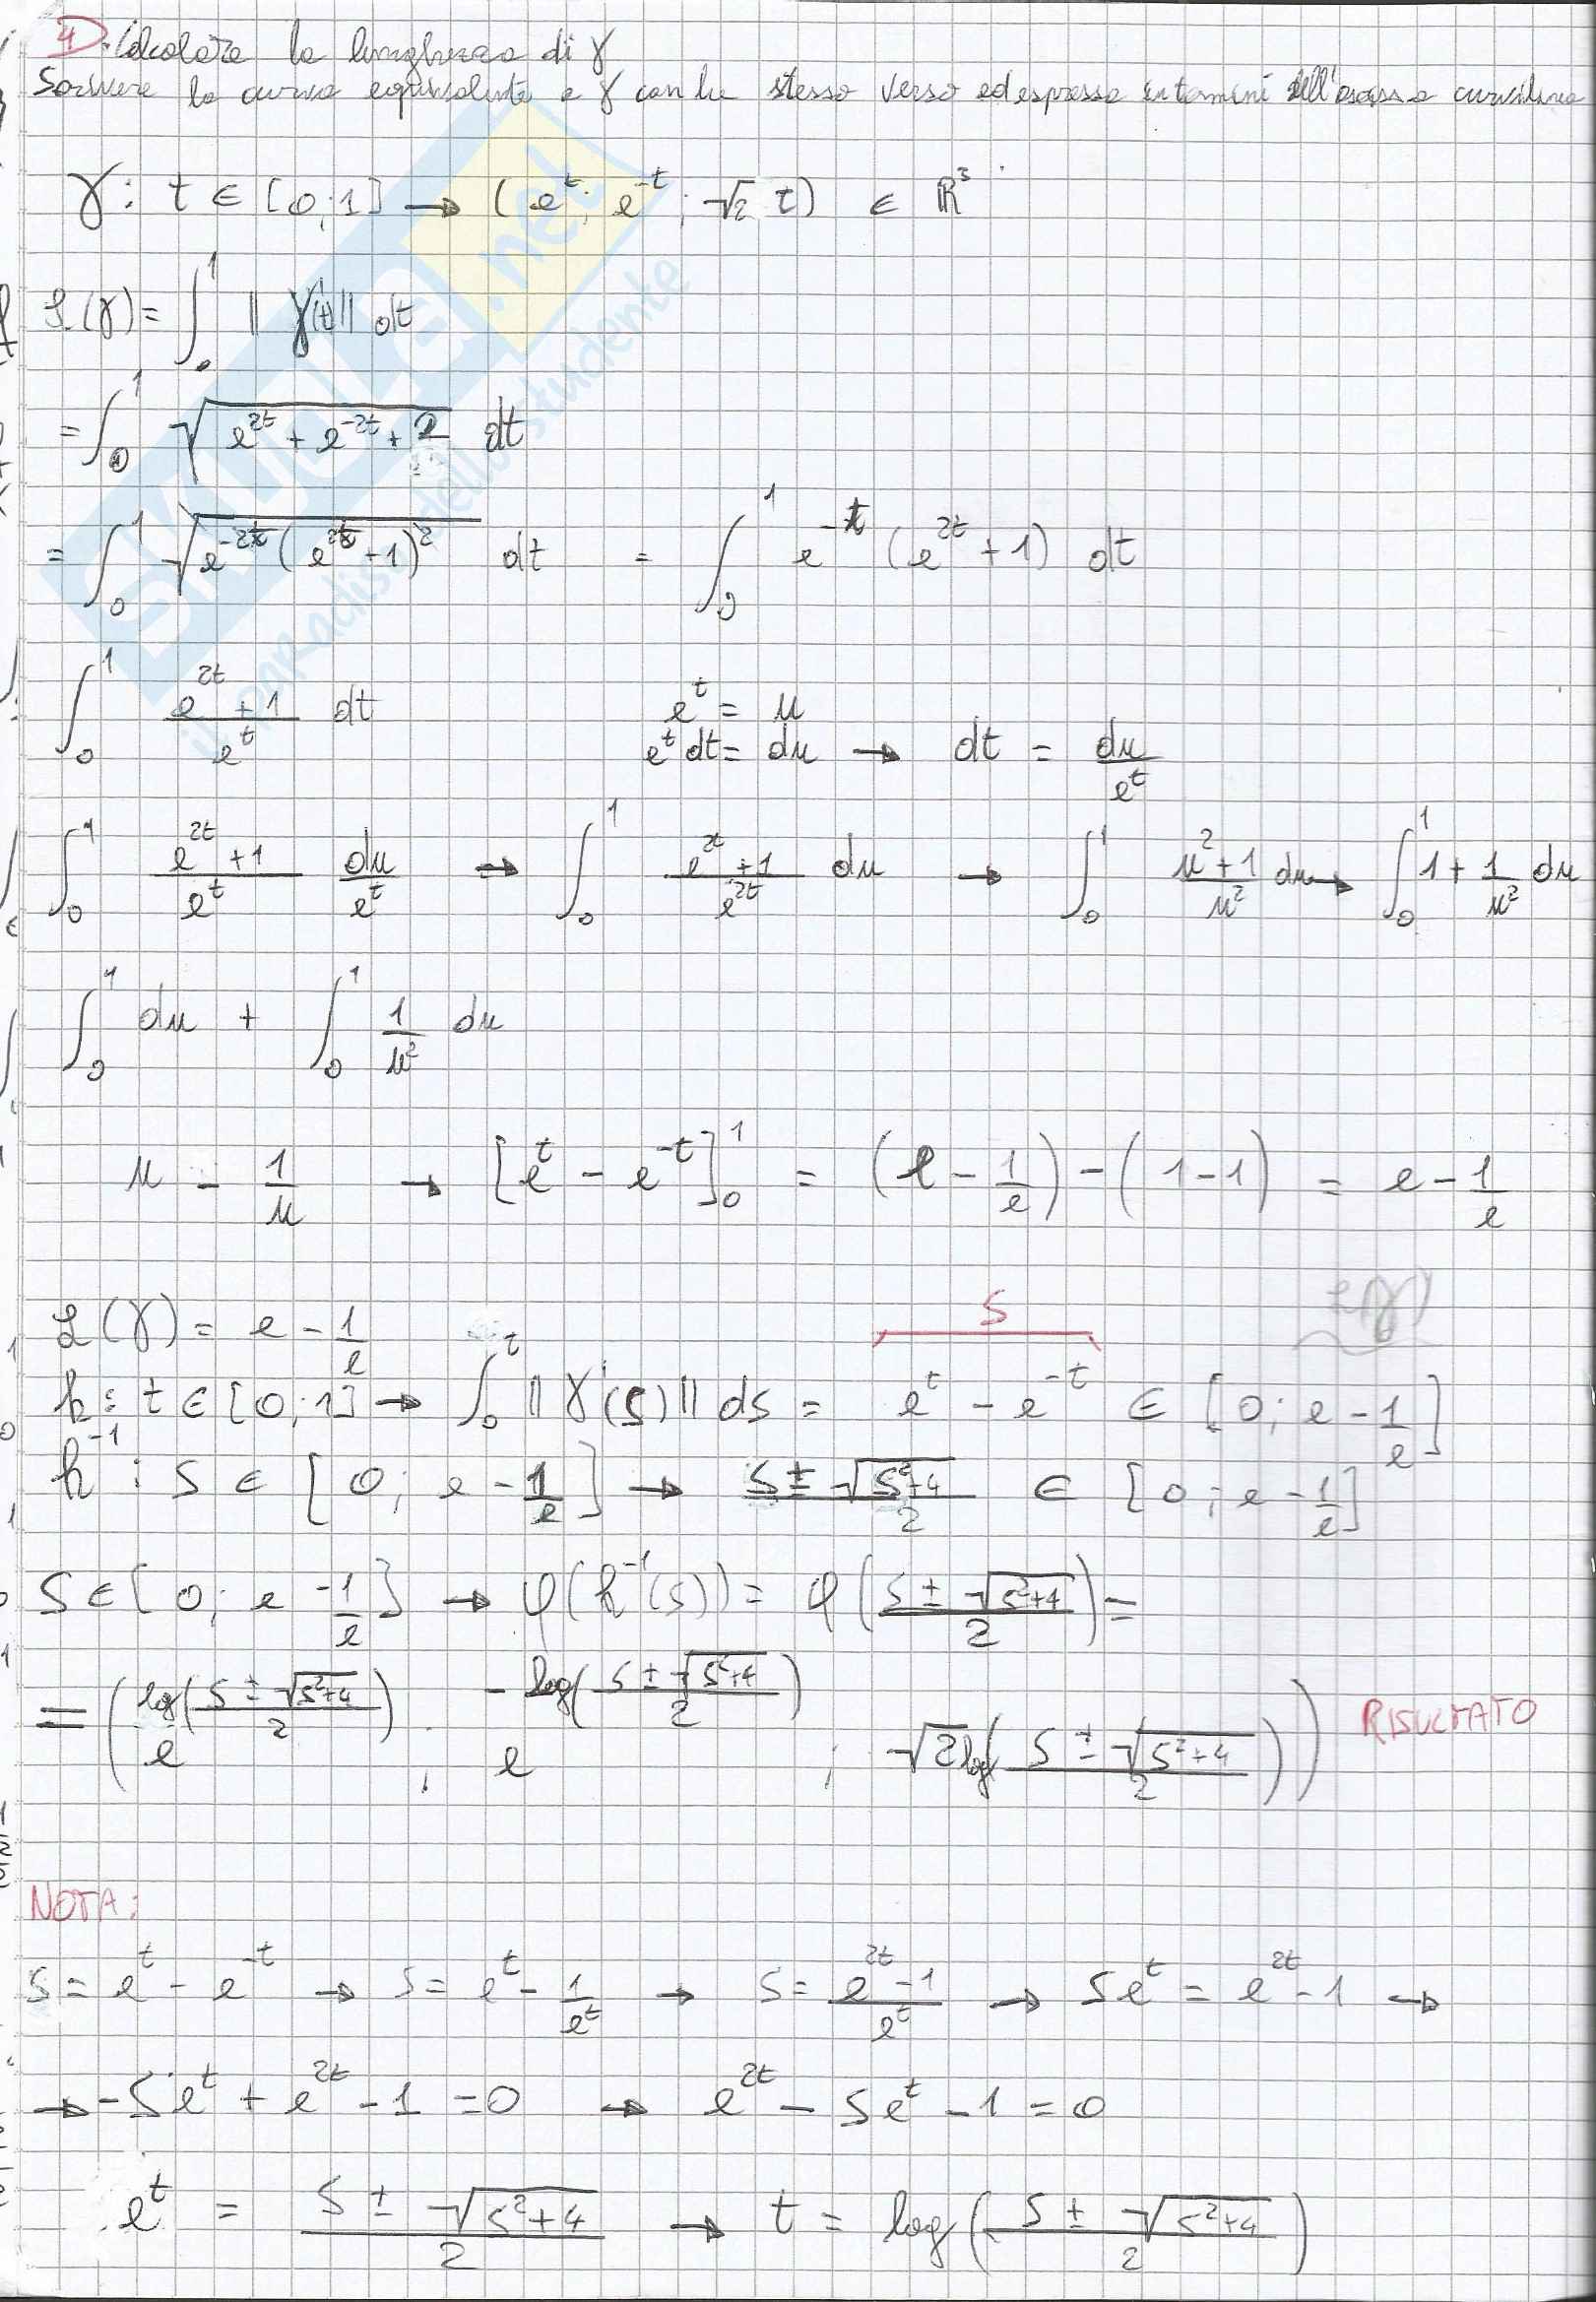 4) Calcolare la lunghezza di γ
Scrivere la curva equivalente a γ con lo stesso verso ed espressa in termini dell'ascissa curvilinea
γ: t ∈ [0;1] → (e^t; e^-t; √2 t) ∈ ℝ³
L(γ) = ∫₀¹ ‖γ'(t)‖ dt
= ∫₀¹ √(e^2t + e^-2t + 2) dt
= ∫₀¹ √(e^-2t (e^2t + 1)²) dt = ∫₀¹ e^-t (e^2t + 1) dt
∫₀¹ (e^2t + 1)/e^t dt e^t = u
e^t dt = du → dt = du/e^t
∫₀¹ (e^2t + 1)/e^t du/e^t → ∫₀¹ (e^2t + 1)/e^2t du → ∫₀¹ (u² + 1)/u² du → ∫₀¹ 1 + 1/u² du
∫₀¹ du + ∫₀¹ 1/u² du
u - 1/u → [e^t - e^-t]₀¹ = (e - 1/e) - (1 - 1) = e - 1/e
S L(γ)
L(γ) = e - 1/e
h: t ∈ [0;1] → ∫₀^t ‖γ'(s)‖ ds = e^t - e^-t ∈ [0; e - 1/e]
h^-1: S ∈ [0; e - 1/e] → (S ± √(S²+4))/2 ∈ [0; e - 1/e]
S ∈ [0; e - 1/e] → φ(h^-1(s)) = φ((S ± √(S²+4))/2) =
= (e^log((S ± √(S²+4))/2); e^-log((S ± √(S²+4))/2); √2 log((S ± √(S²+4))/2)) RISULTATO
NOTA:
S = e^t - e^-t → S = e^t - 1/e^t → S = (e^2t - 1)/e^t → Se^t = e^2t - 1 →
→ -Se^t + e^2t - 1 = 0 → e^2t - Se^t - 1 = 0
e^t = (S ± √(S²+4))/2 → t = log((S ± √(S²+4))/2)
SKUOLA.net
il paradiso dello studente